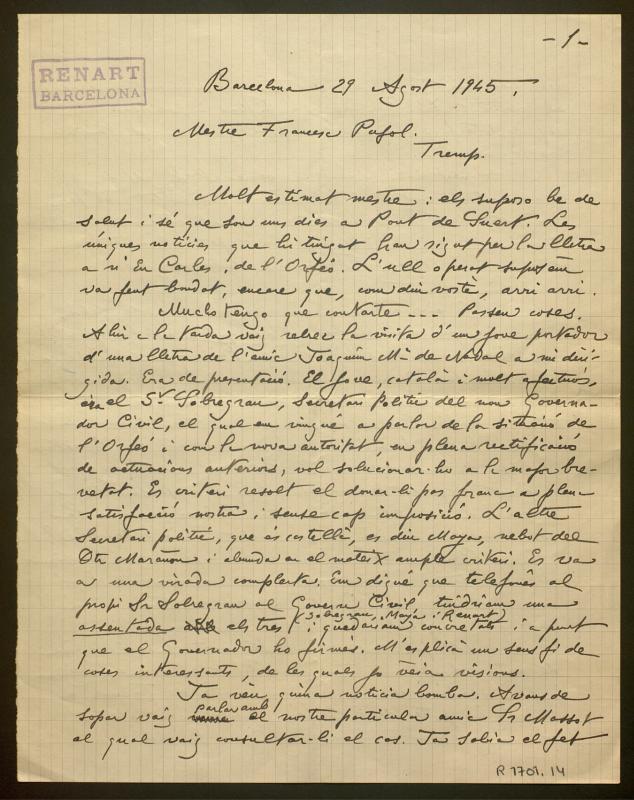 -1-
RENART
BARCELONA
Barcelona 29 Agost 1945.
Mestre Francesc Pujol.
Tremp.
Molt estimat mestre: els suposo be de
salut i sé que son uns dies a Pont de Suert. Les
úniques noticies que hi tingut han sigut per la lletra
a n'En Carles, de l'Orfeó. L'ull operat suposem
va fent bondat, encare que, com diu vostè, arri arri.
Mucho tengo que contarte --- Passen coses.
Ahir a la tarda vaig rebrer la visita d'un jove portador
d'una lletra de l'amic Joaquim Mª de Nadal a mi diri-
gida. Era de presentació. El jove, català i molt afectuós,
era el Sr Sobregrau, Secretari Politic del nou Governa-
dor Civil, el qual em vingué a parlar de la sitració de
l'Orfeó i com la nova autoritat, en plena rectificació
de actuacions anteriors, vol solucionar-ho a la major bre-
vetat. Es criteri resolt el donar-li pas franc a plena
satisfacció nostra i sense cap imposició. L'altre
Secretari politic, que és castellà, es diu Moya, nebot del
Dtr Marañon i abunda en el mateix ample criteri. Es va
a una virada complerta. Em digué que telefonés al
propi Sr Sobregrau al Govern Civil, tindriam una
assentada els tres (Sobregrau, Moya i Renart) i quedariam concretats i a punt
que el Governador ho firmés. M'esplicà un sens fi de
coses interessants, de les quals jo veia visions.
Ja veu quina noticia bomba. Avans de
sopar vaig parlar amb el nostre particular amic Sr Massot
al qual vaig consultar-li el cas. Ja sabia el fet
R 1701.14